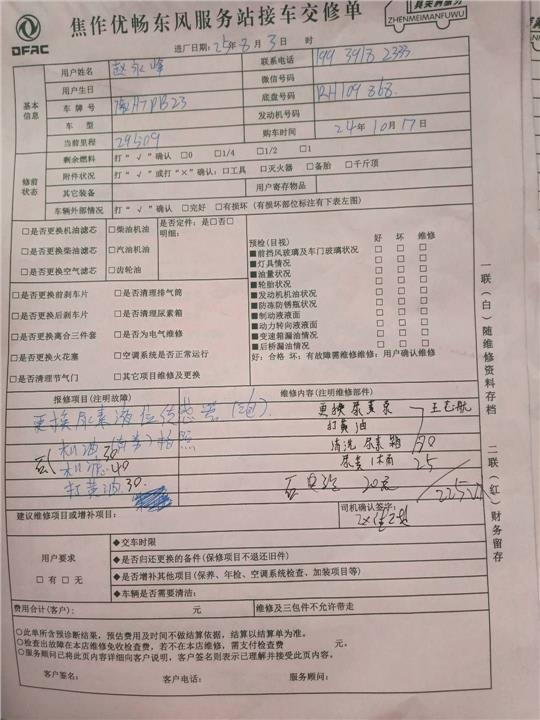 DFAC
焦作优畅东风服务站接车交修单
ZHENMEIMANFUWU
进厂日期：25年8月3日 时
基本信息
用户姓名 联系电话 199 3918 2333
用户生日 微信号码
车牌号 底盘号码 RH109868
车型 发动机号码
当前里程 29509 购车时间 24年10月17日
修前状态
剩余燃料 打“√”确认 □0 □1/4 □1/2 □1
附件状况 打“√”或打“×”确认：□工具 □灭火器 □备胎 □千斤顶
其它装备 用户寄存物品
车辆外部情况 打“√”确认 □完好 □有损坏 (有损坏部位标注有下表左图)
□是否更换机油滤芯 □柴油机油 是否定件：是□否□
明细：
□是否更换柴油滤芯 □汽油机油
□是否更换空气滤芯 □齿轮油
□是否更换前刹车片 □是否清理排气筒
□是否更换后刹车片 □是否清理尿素箱
□是否更换离合三件套 □是否为电气维修
□是否更换火花塞 □空调系统是否正常运行
□是否清理节气门 □其它项目维修及更换
预检(目视) 好 坏 维修
■前挡风玻璃及车门玻璃状况 □ □ □
■灯具情况 □ □ □
■油量状况 □ □ □
■轮胎状况 □ □ □
■发动机机油状况 □ □ □
■防冻防锈瓶状况 □ □ □
■制动液液面 □ □ □
■动力转向液液面 □ □ □
■变速箱漏油情况 □ □ □
■后桥漏油情况 □ □ □
好：合格 坏：有故障需维修维修：用户确认维修
报修项目(注明故障) 维修内容(注明维修部件)
更换尿素液位传感器
更换尿素泵
打黄油
机油 30
清洗尿素箱 190
机滤 40
尿素1桶 25
打黄油 30
20元
建议维修项目或增补项目： 司机确认签字：
用户要求
□有 □无
◆交车时限
◆是否归还更换的备件(保修项目不退还旧件)
◆是否增补其他项目(保养、年检、空调系统检查、加装项目等)
◆车辆是否需要清洁：
费用合计(客户)： 元 维修及三包件不允许带走
○此单所含预诊断结果，预估费用及时间不做结算依据，结算以结算单为准。
○检查出故障在本店维修免收检查费，若不在本店维修，需支付检查费 元。
○服务顾问已将此页内容详细向客户说明，客户签名则表示已理解并接受此页内容。
客户签名： 客户电话： 服务顾问：
一联（白）随维修资料存档
二联（红）财务留存